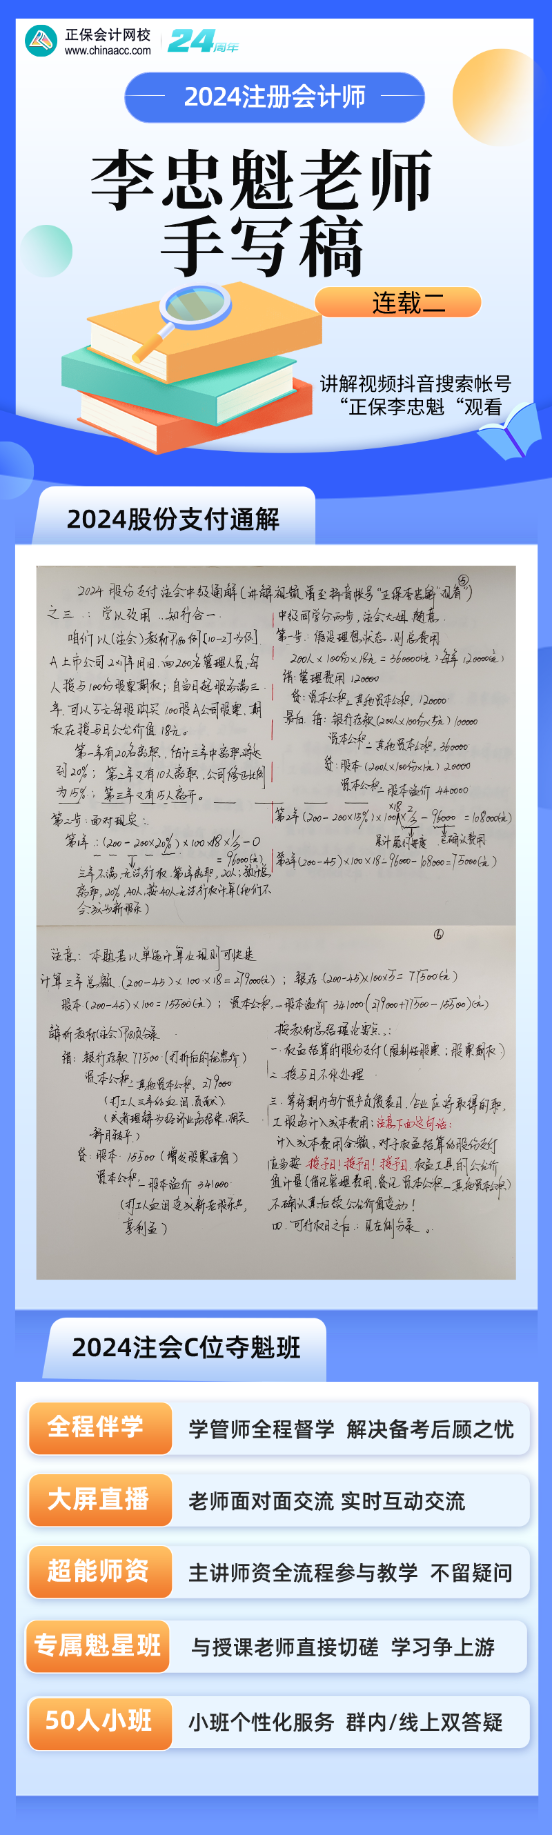 正保会计网校
www.chinaacc.com
24周年
2024注册会计师
李忠魁老师
手写稿
连载二
讲解视频抖音搜索帐号
“正保李忠魁“观看
2024股份支付通解
2024 股份支付注会中级通解(讲解视频请至抖音帐号"正保李忠魁"观看")
⑤
之三：学以致用，知行合一.
咱们以(注会)教材
A上市公司
人授与100份股票期权；自当日起服务满三
年，可以5元每股购买100股A公司股票，期
权在授与日公允价值18元。
第一年有20名离职，估计三年中离职将达
到20%；第二年又有10人离职，公司修正比例
为15%；第三年又有15人离开。
第二步：面对现实：
第1年：(200-200×20%)×100×18×1/3-0
=96000(元)
中级同学分两步，注会大姐随意.
第一步：假设理想状态，则总费用
200人×100份×18元=360000(元)每年120000(元)
借：管理费用 120000
贷：资本公积-其他资本公积 120000
最后 借：银行存款(200人×100份×5元)100000
资本公积-其他资本公积 360000
贷：股本(200人×100份×1元)20000
资本公积-股本溢价 440000
第2年(200-200×15%)×100×18×2/3-96000=108000(元)
累计 已确认费用
第3年(200-45)×100×18-96000-108000=75000(元)
⑥
注意：本题若以单选计算出现则可快速
计算三年总额(200-45)×100×18=279000(元)；银存(200-45)×100×5=77500(元)
股本(200-45)×100=15500(元)；资本公积-股本溢价341000(279000+77500-15500)(元)
借：银行存款 77500(打折后的优惠价)
资本公积-其他资本公积 279000
贷：股本 15500(增发股票面值)
资本公积-股本溢价 341000
一.权益结算的股份支付(限制性股票；股票期权)
二.授与日不作处理.
三.等待期内每个资产负债表日，企业应将取得的职
工服务计入成本费用；注意下面这句话：
计入成本费用金额，对于权益结算的股份支付
应当按 授予日！授予日！授予日.权益工具的公允价
值计量(借记管理费用，贷记资本公积-其他资本公积)
不确认其后续公允价值变动！
四.可行权日之后：见左侧分录。
2024注会C位夺魁班
全程伴学
学管师全程督学 解决备考后顾之忧
大屏直播
老师面对面交流 实时互动交流
超能师资
主讲师资全流程参与教学 不留疑问
专属魁星班
与授课老师直接切磋 学习争上游
50人小班
小班个性化服务 群内/线上双答疑